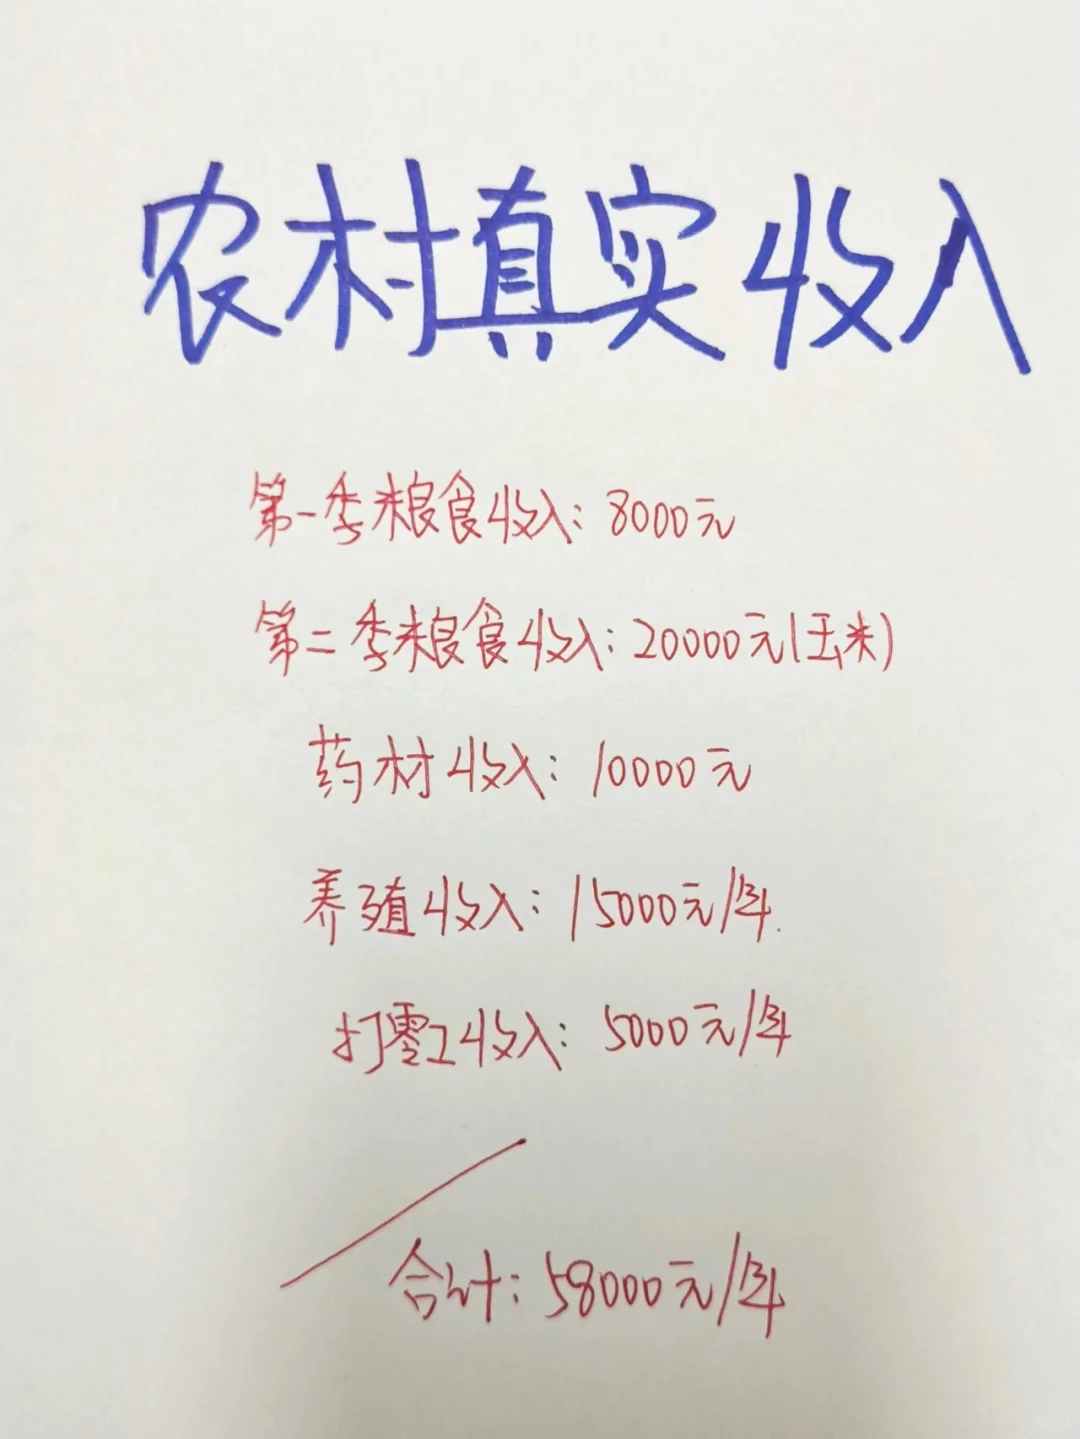 农村真实收入
第一季粮食收入：8000元
第二季粮食收入：20000元(玉米)
药材收入：10000元
养殖收入：15000元/年.
打零工收入：5000元/年
合计：58000元/年